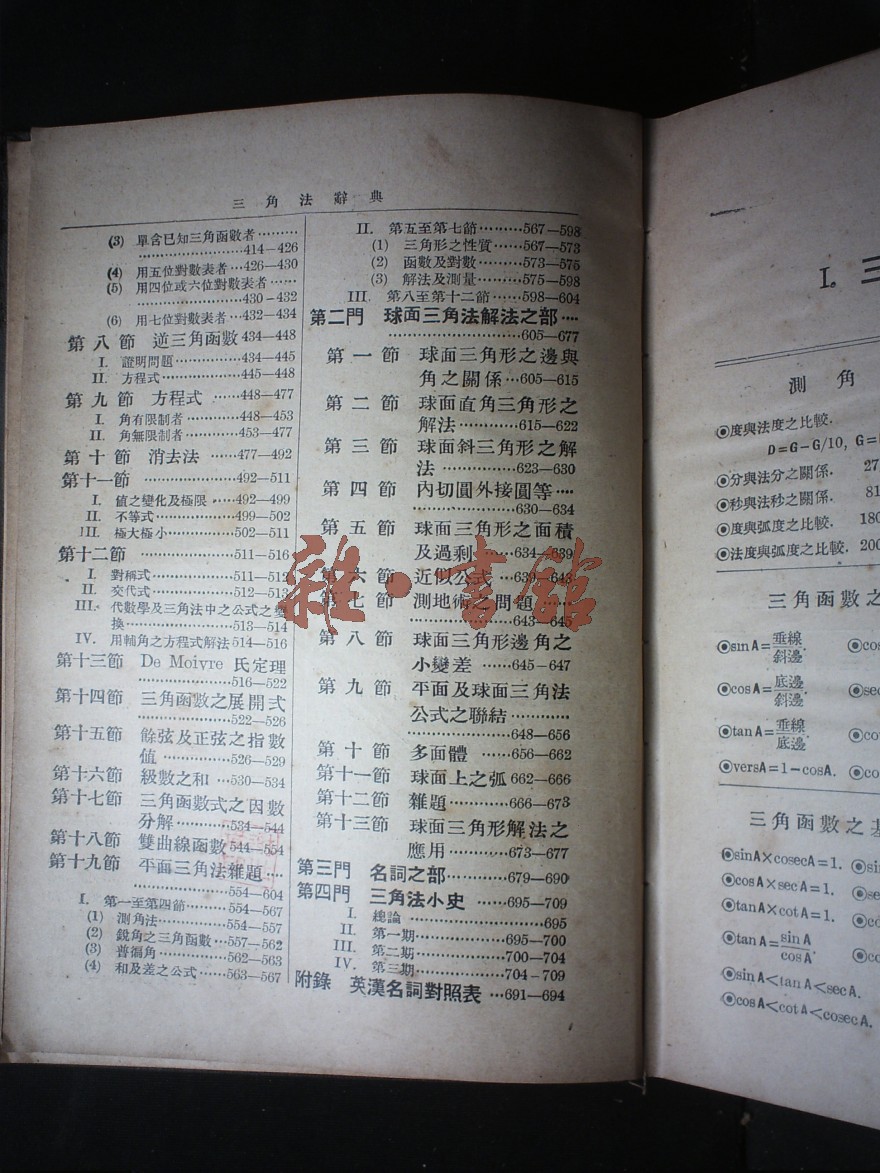 三角法辭典
(3) 單含已知三角函數者………
…………………414—426
(4) 用五位對數表者…426—430
(5) 用四位或六位對數表者……
…………………430—432
(6) 用七位對數表者…432—434
第八節 逆三角函數 434—448
I. 證明問題…………434—445
II. 方程式……………445—448
第九節 方程式……448—477
I. 角有限制者………448—453
II. 角無限制者………453—477
第十節 消去法……477—492
第十一節……………492—511
I. 值之變化及極限……492—499
II. 不等式……………499—502
III. 極大極小…………502—511
第十二節……………511—516
I. 對稱式……………511—512
II. 交代式……………512—513
III. 代數學及三角法中之公式之變
換………………513—514
IV. 用輔角之方程式解法 514—516
第十三節 De Moivre 氏定理
…………………516—522
第十四節 三角函數之展開式
…………………522—526
第十五節 餘弦及正弦之指數
值…………526—529
第十六節 級數之和…530—534
第十七節 三角函數式之因數
分解………534—544
第十八節 雙曲線函數 544—554
第十九節 平面三角法雜題…
…………………554—604
I. 第一至第四節………554—567
(1) 測角法…………554—557
(2) 銳角之三角函數…557—562
(3) 普徧角…………562—563
(4) 和及差之公式……563—567
II. 第五至第七節………567—598
(1) 三角形之性質……567—573
(2) 函數及對數………573—575
(3) 解法及測量………575—598
III. 第八至第十二節……598—604
第二門 球面三角法解法之部…
…………………605—677
第一節 球面三角形之邊與
角之關係…605—615
第二節 球面直角三角形之
解法…………615—622
第三節 球面斜三角形之解
法…………623—630
第四節 內切圓外接圓等…
…………………630—634
第五節 球面三角形之面積
及過剩……634—639
第六節 近似公式…639—643
第七節 測地術之問題……
…………………643—645
第八節 球面三角形邊角之
小變差……645—647
第九節 平面及球面三角法
公式之聯結…………
…………………648—656
第十節 多面體……656—662
第十一節 球面上之弧 662—666
第十二節 雜題…………666—673
第十三節 球面三角形解法之
應用………673—677
第三門 名詞之部………679—690
第四門 三角法小史……695—709
I. 總論……………………695
II. 第一期……………695—700
III. 第二期……………700—704
IV. 第三期……………704—709
附錄 英漢名詞對照表…691—694
雜·書館
I. 三
測角
◉度與法度之比較.
D=G−G/10, G=
◉分與法分之關係. 27
◉秒與法秒之關係. 81
◉度與弧度之比較. 180
◉法度與弧度之比較. 200
三角函數之
◉sinA=垂線/斜邊. ◉cos
◉cosA=底邊/斜邊. ◉sec
◉tanA=垂線/底邊. ◉co
◉versA=1−cosA. ◉co
三角函數之基
◉sinA×cosecA=1. ◉sin
◉cosA×secA=1.
◉tanA×cotA=1. ◉c
◉tanA=sinA/cosA. ◉c
◉sinA<tanA<secA.
◉cosA<cotA<cosecA.